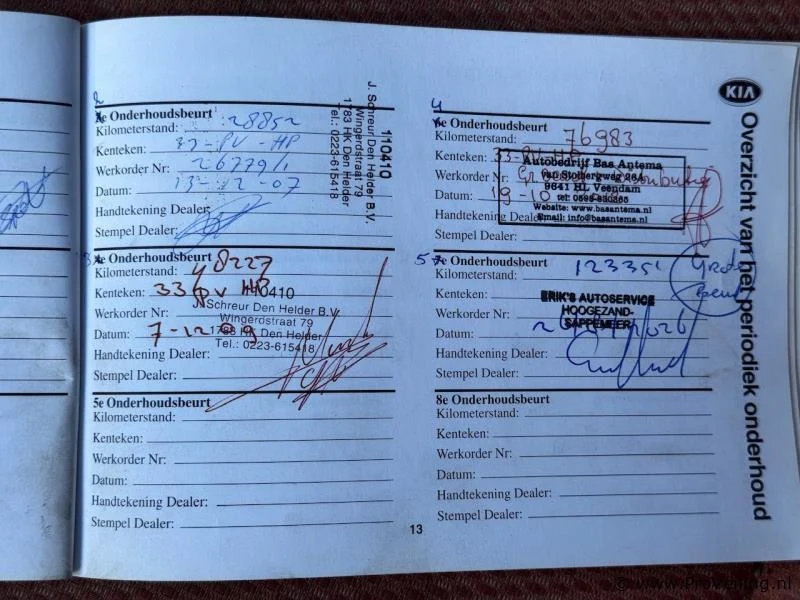 KIA
Overzicht van het periodiek onderhoud
2
e Onderhoudsbeurt
Kilometerstand: 28852
Kenteken: 33-PV-HP
Werkorder Nr: 26779/1
Datum: 13-12-07
Handtekening Dealer:
Stempel Dealer:
1110410
J. Schreur Den Helder B.V.
Wingerdstraat 79
1783 HK Den Helder
Tel.: 0223-615418
3
e Onderhoudsbeurt
Kilometerstand: 48227
Kenteken: 33 PV HP
Werkorder Nr:
Datum: 7-12-09
Handtekening Dealer:
Stempel Dealer:
110410
J. Schreur Den Helder B.V.
Wingerdstraat 79
1783 HK Den Helder
Tel.: 0223-615418
5e Onderhoudsbeurt
Kilometerstand:
Kenteken:
Werkorder Nr:
Datum:
Handtekening Dealer:
Stempel Dealer:
4
e Onderhoudsbeurt
Kilometerstand: 76983
Kenteken: 33-
Werkorder Nr:
Datum: 19-10
Handtekening Dealer:
Stempel Dealer:
Autobedrijf Bas Antema
van Stolbergweg 26A
9641 HL Veendam
Website: www.basantema.nl
Email: info@basantema.nl
5
7e Onderhoudsbeurt
Kilometerstand: 123351
Kenteken:
Werkorder Nr:
Datum:
Handtekening Dealer:
Stempel Dealer:
Grote
Beurt
ERIK'S AUTOSERVICE
HOOGEZAND-
SAPPEMEER
8e Onderhoudsbeurt
Kilometerstand:
Kenteken:
Werkorder Nr:
Datum:
Handtekening Dealer:
Stempel Dealer:
13
© www.ProVeiling.nl